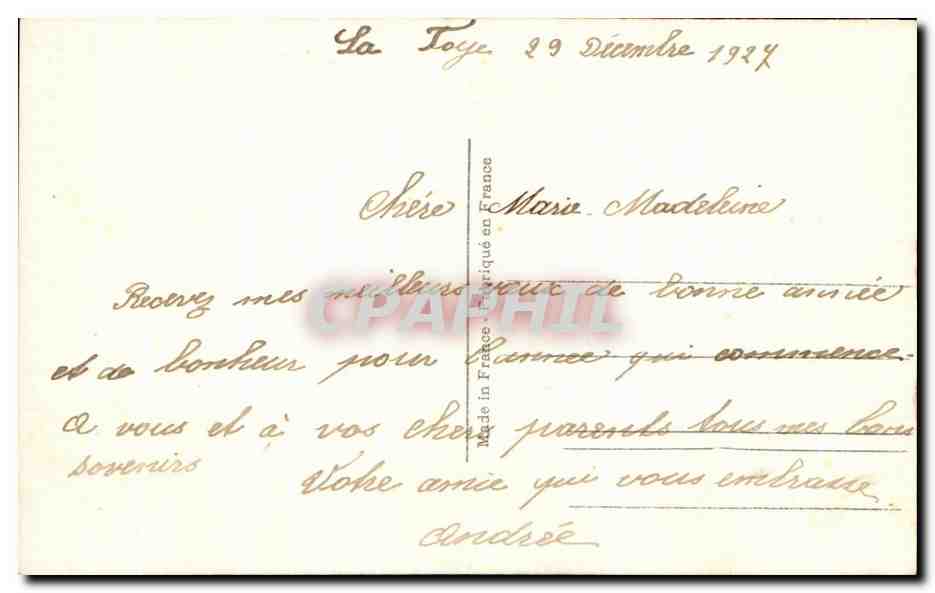 La Foye 29 Décembre 1927
Chére Marie-Madeleine
Recevez mes meilleurs voeux de bonne année
et de bonheur pour l'année qui commence.
A vous et à vos chers parents tous mes bons
sovenirs
Votre amie qui vous embrasse
Andrée
Made in France - Fabriqué en France
CPAPHIL